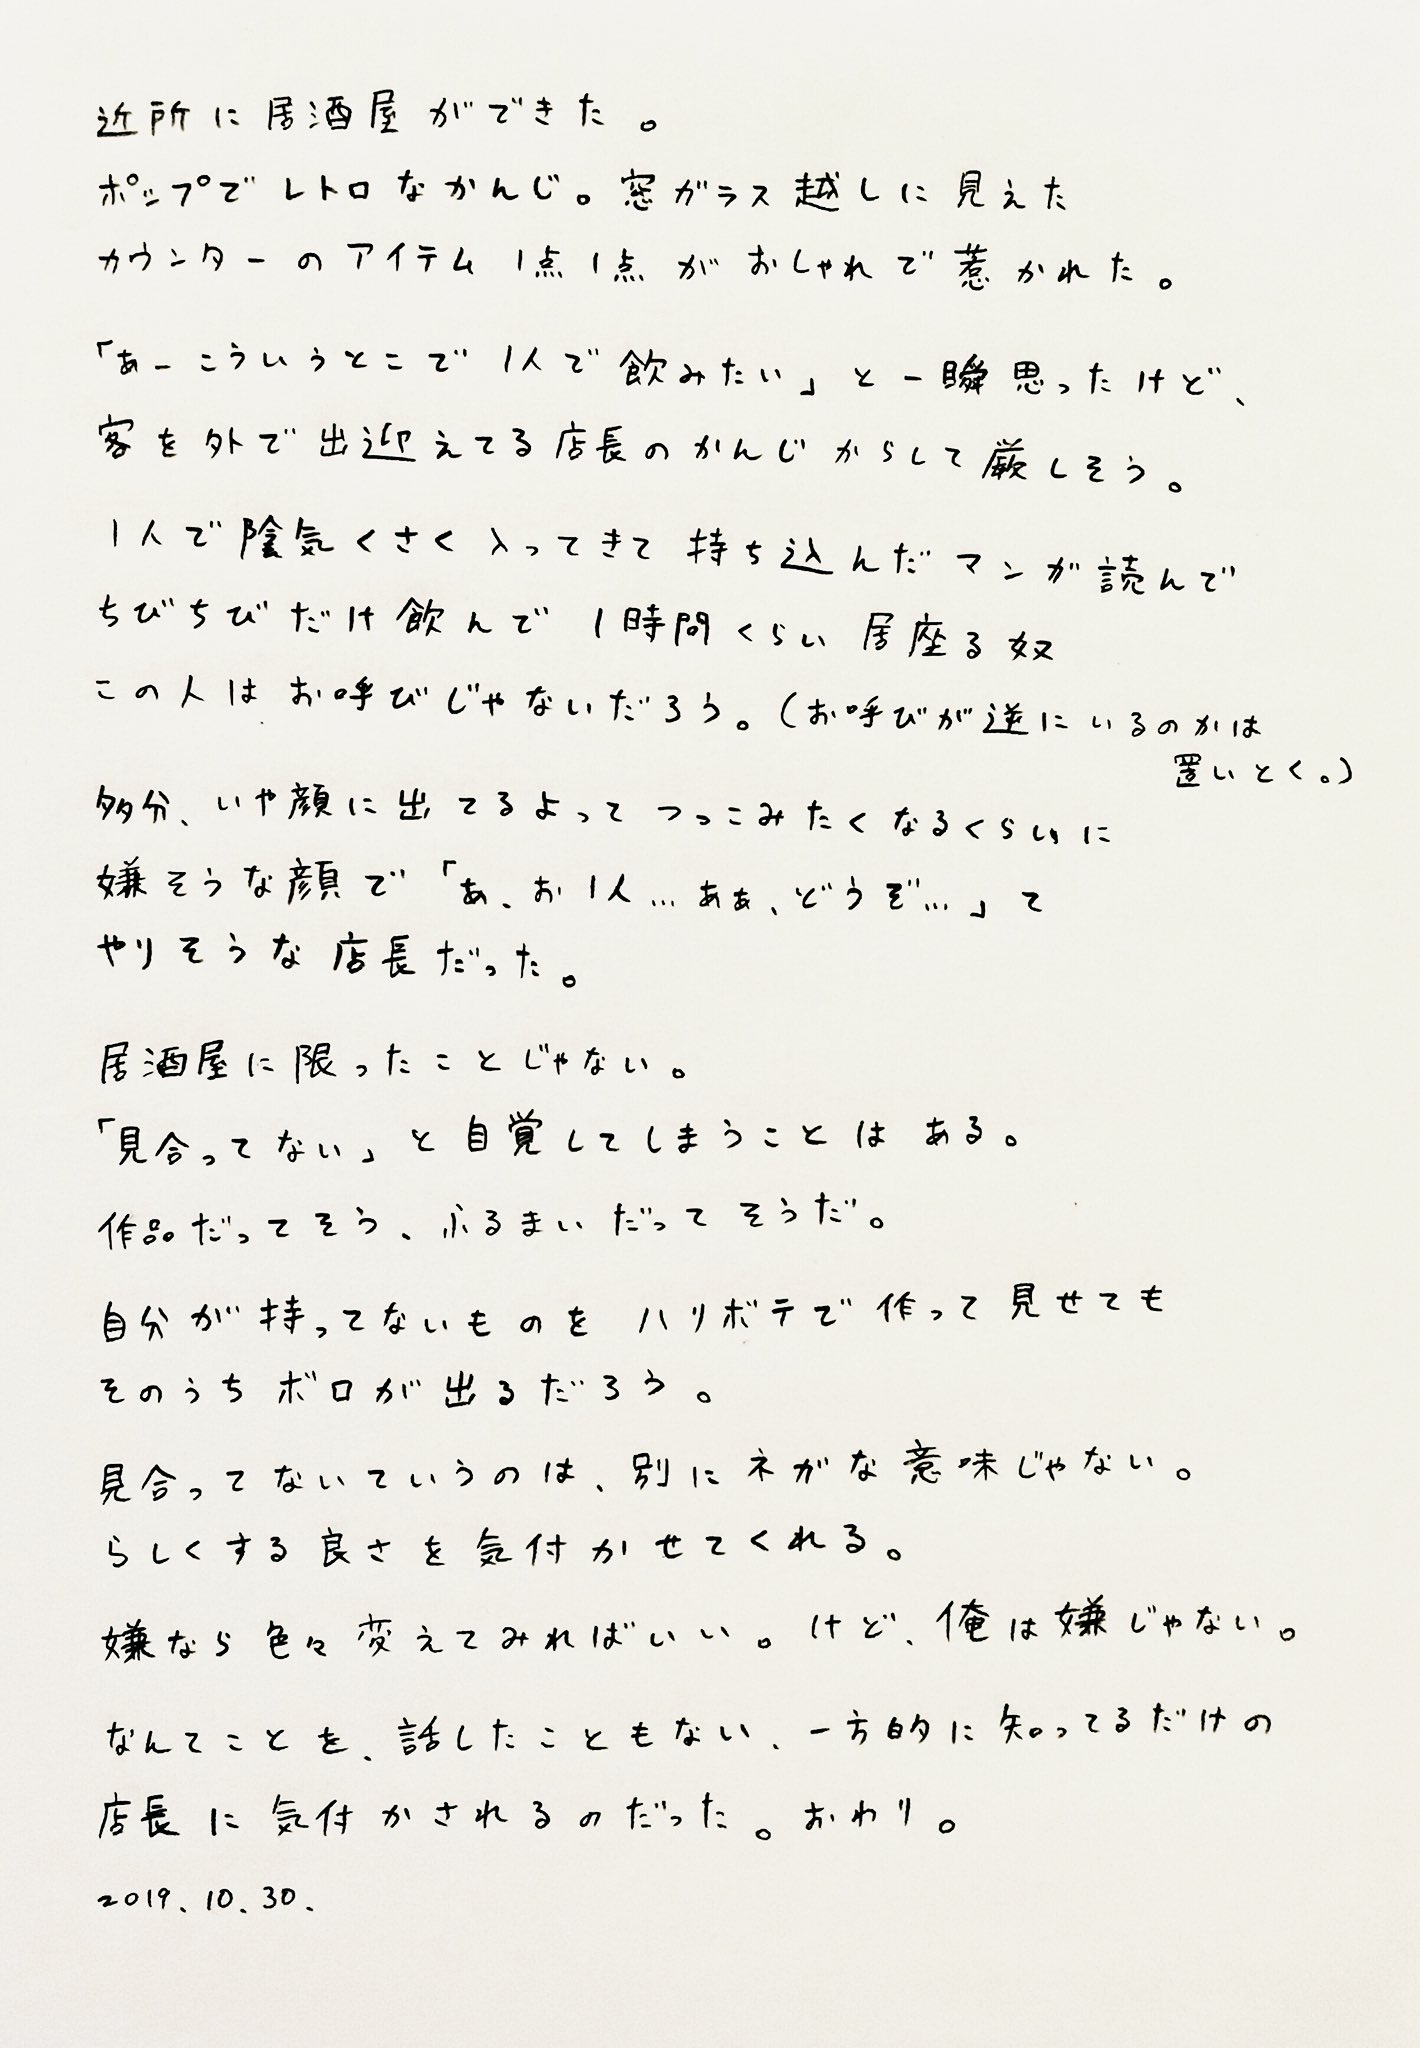 近所に居酒屋ができた。
ポップでレトロなかんじ。窓ガラス越しに見えた
カウンターのアイテム1点1点がおしゃれで惹かれた。
「あーこういうとこで1人で飲みたい」と一瞬思ったけど、
客を外で出迎えてる店長のかんじからして厳しそう。
1人で陰気くさく入ってきて持ち込んだマンガ読んで
ちびちびだけ飲んで1時間くらい居座る奴
この人はお呼びじゃないだろう。(お呼びが逆にいるのかは
置いとく。)
多分、いや顔に出てるよってつっこみたくなるくらいに
嫌そうな顔で「あ、お1人…あぁ、どうぞ…」て
やりそうな店長だった。
居酒屋に限ったことじゃない。
「見合ってない」と自覚してしまうことはある。
作品だってそう、ふるまいだってそうだ。
自分が持ってないものをハリボテで作って見せても
そのうちボロが出るだろう。
見合ってないていうのは、別にネガな意味じゃない。
らしくする良さを気付かせてくれる。
嫌なら色々変えてみればいい。けど、俺は嫌じゃない。
なんてことを、話したこともない、一方的に知ってるだけの
店長に気付かされるのだった。おわり。
2019.10.30.